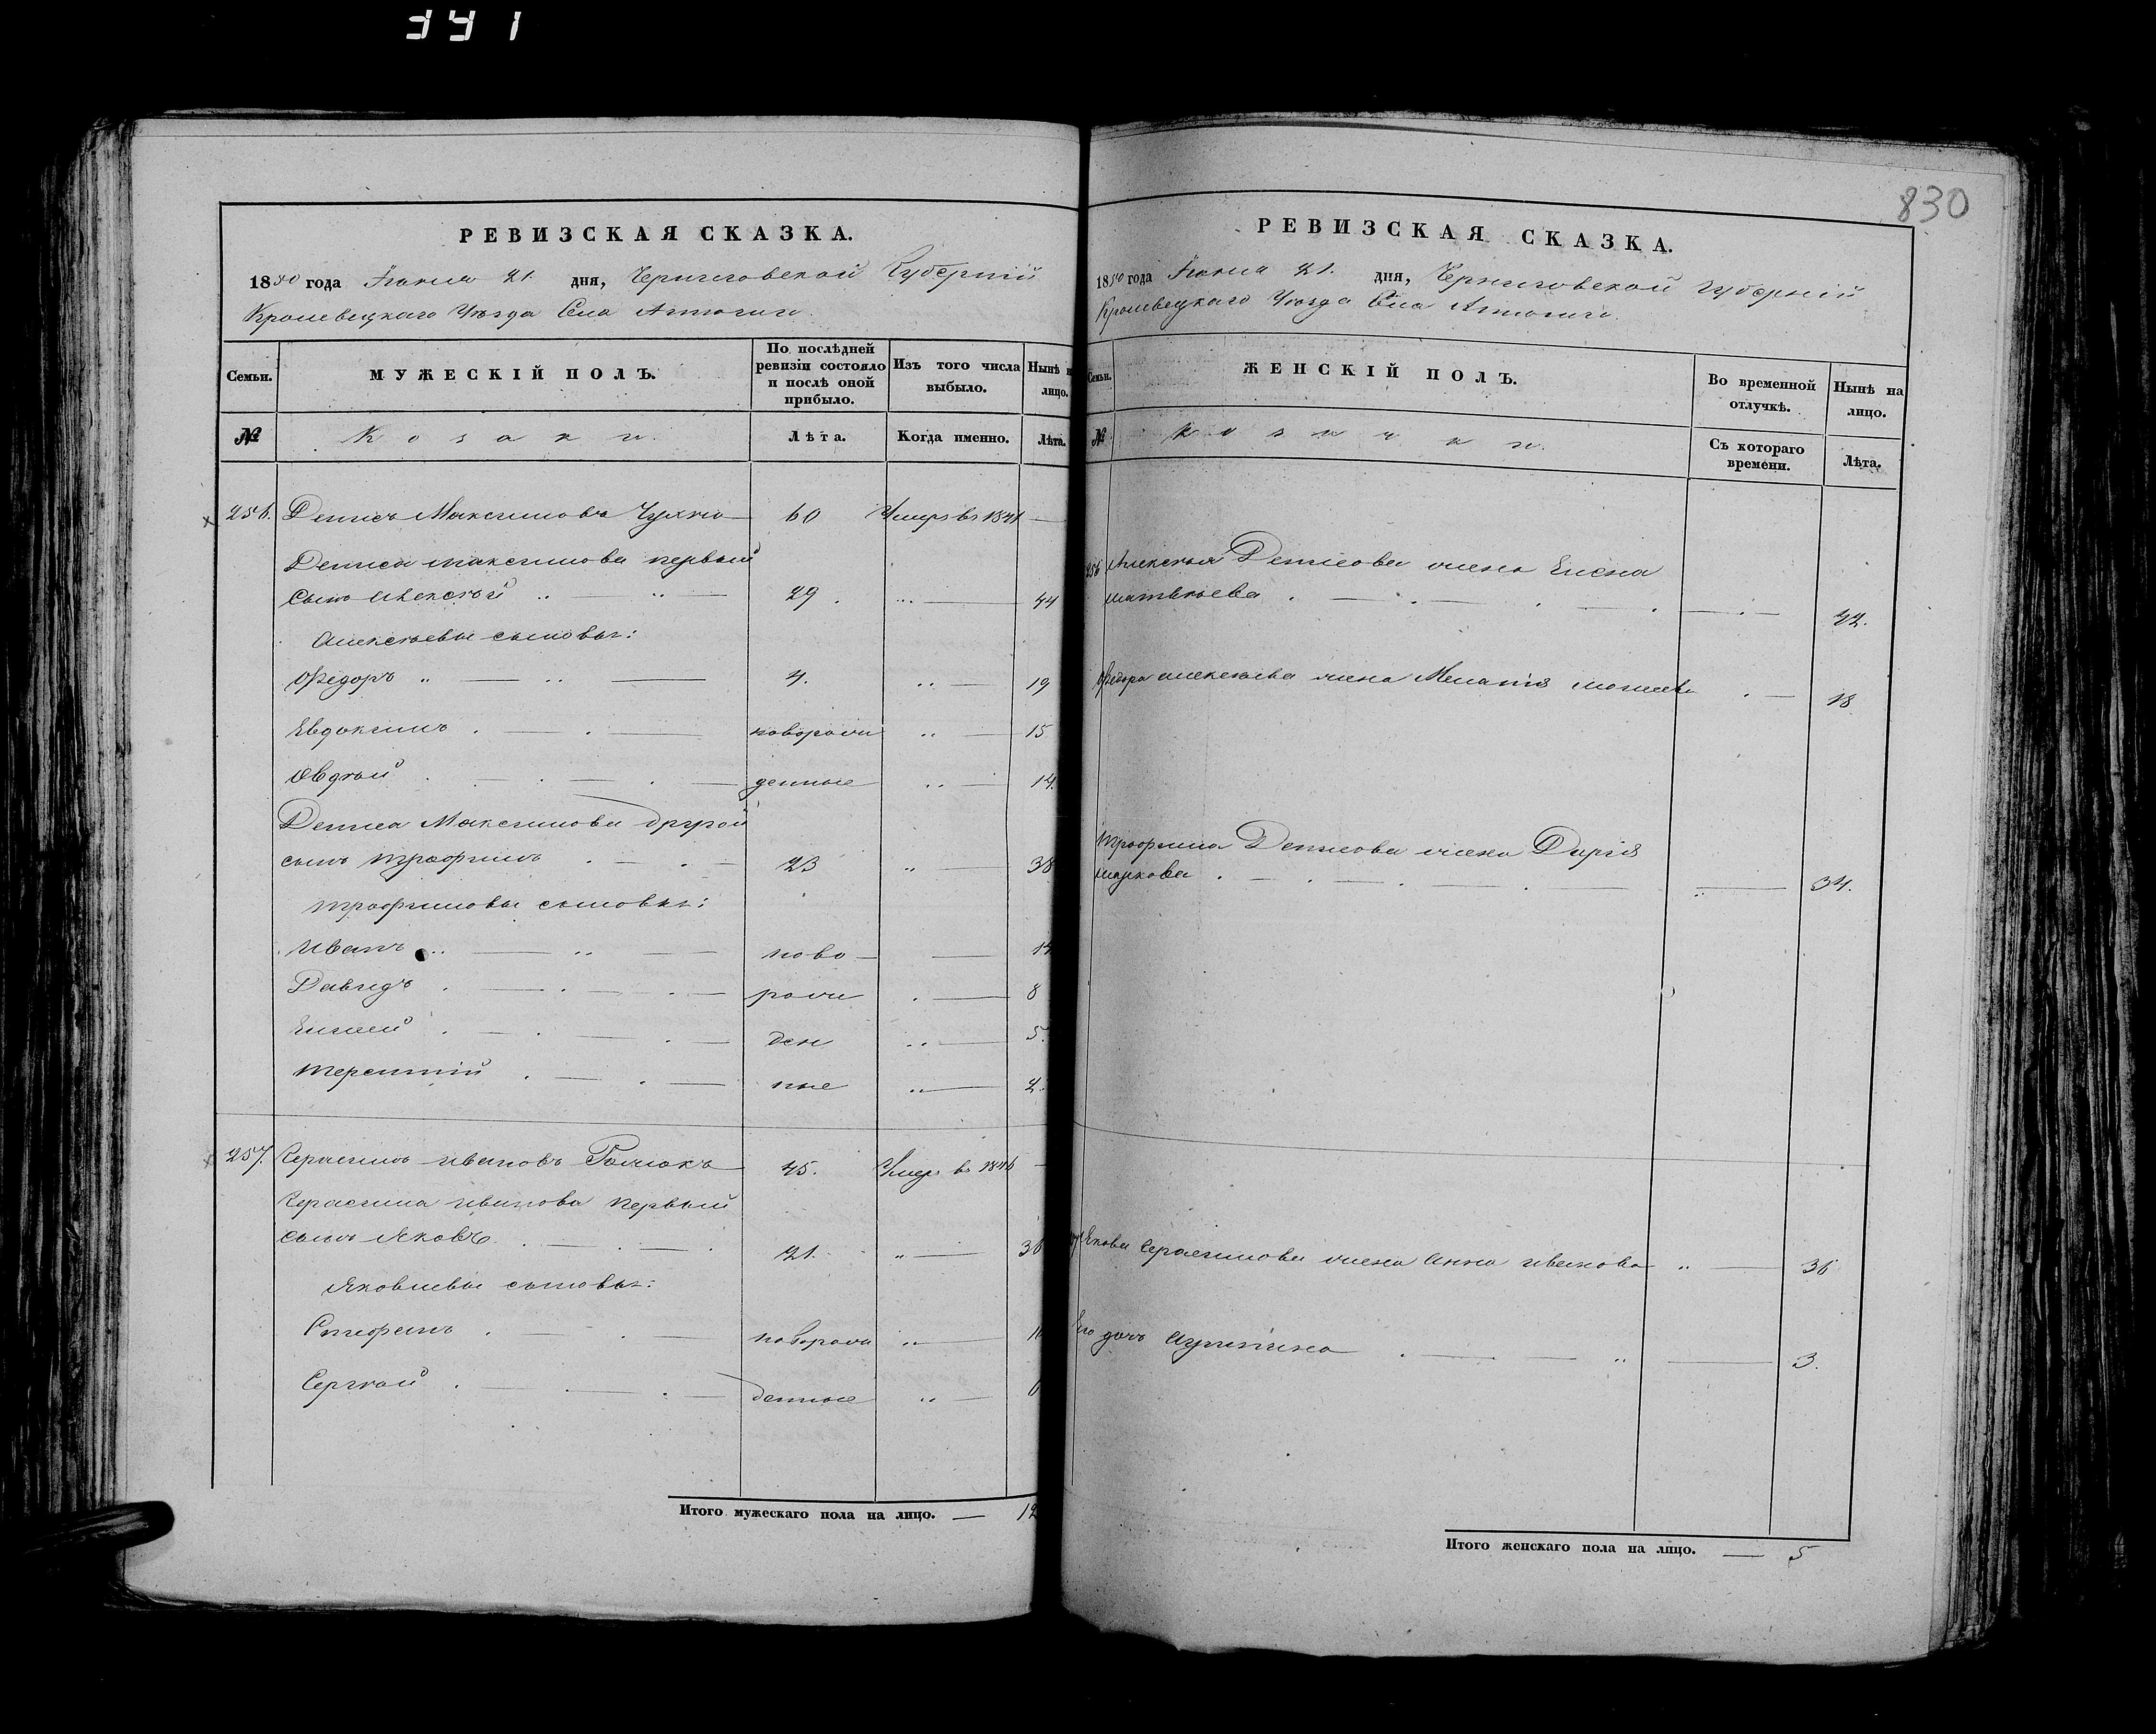 341
830
РЕВИЗСКАЯ СКАЗКА.
1850 года Іюня 21. дня, Черниговской Губерніи
Кролевецкаго Уѣзда Села
Семьи.
МУЖЕСКІЙ ПОЛЪ.
По послѣдней ревизіи состояло и послѣ оной прибыло.
Изъ того числа выбыло.
Нынѣ на лицо.
№
Козаки.
Лѣта.
Когда именно.
Лѣта.
256. Денисъ Максимовъ 60 Умеръ въ 1841 —
Дениса Максимова первый
сынъ Алексѣй 29. 44
Алексѣевы сыновья:
Федоръ 4. 19
Евдокимъ новорож 15
Овдѣй денные 14.
Дениса Максимова другой
сынъ Трофимъ 23 38
Трофимовы сыновья:
Иванъ ново
Давидъ рож 8
Елисей ден 5.
Терентій ные 2.
257. Герасимъ Ивановъ 45. Умеръ въ 1846 —
Герасима Иванова первый
сынъ Яковъ 21. 36
Яковлевы сыновья:
Стефанъ новорож
Сергѣй денные 6
Итого мужескаго пола на лицо. — 12
РЕВИЗСКАЯ СКАЗКА.
1850 года Іюня 21. дня, Черниговской Губерніи
Кролевецкаго Уѣзда Села
Семьи.
ЖЕНСКІЙ ПОЛЪ.
Во временной отлучкѣ.
Нынѣ на лицо.
№
Козачки.
Съ котораго времени.
Лѣта.
256 Алексѣя Денисова жена Елена
Матвѣева 42.
Федора Алексѣева жена Меланія 18
Трофима Денисова жена Дарія
Маркова 34.
Якова Герасимова жена Анна Иванова 36
Его дочь Агрипина 3.
Итого женскаго пола на лицо. — 5